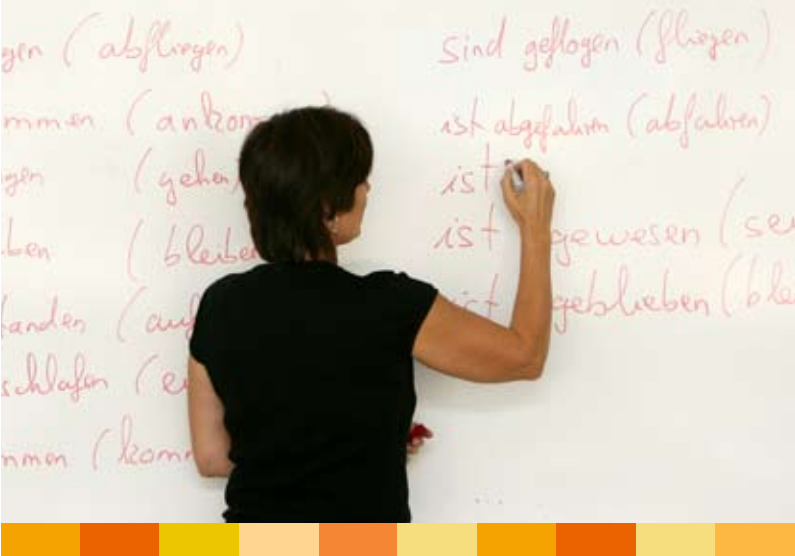 gen (abfliegen)
mmen (ankom
gen (gehen)
ben (bleiben
tanden (auf
schlafen (e
mmen (komm
sind geflogen (fliegen)
ist abgefahren (abfahren)
ist
ist gewesen (sei
ist geblieben (blei
...